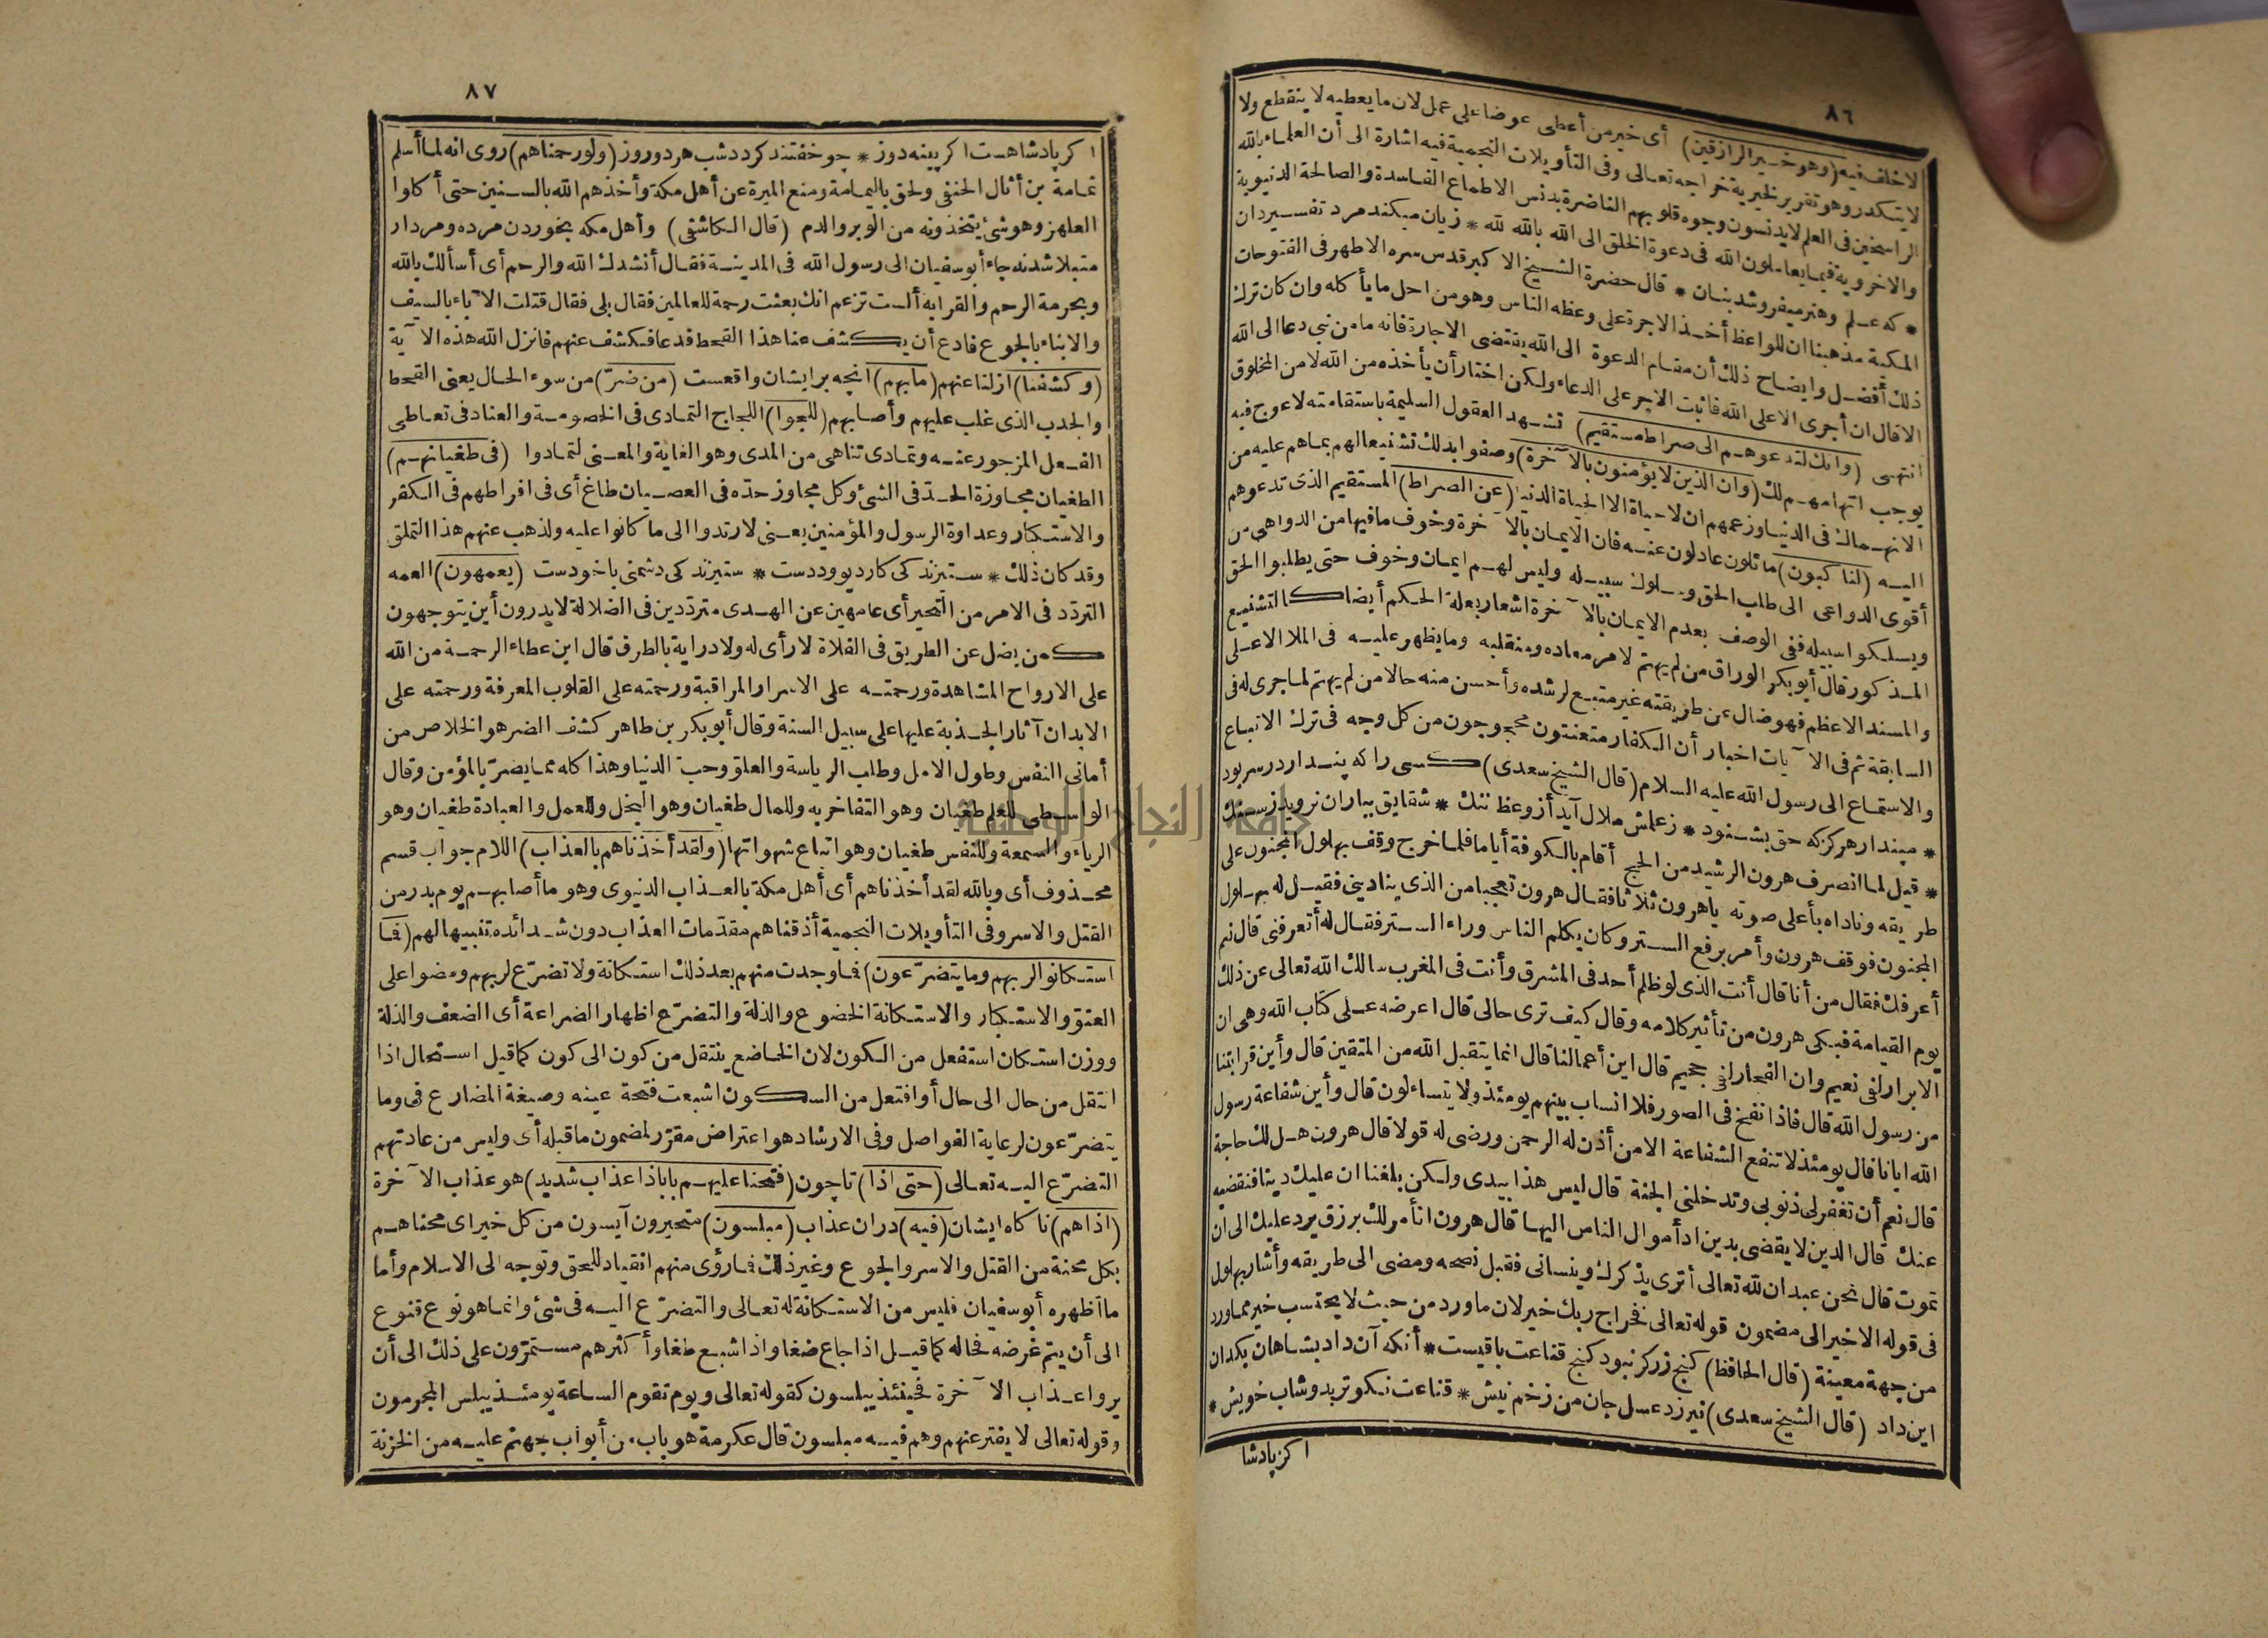 ٨٦
لا خلف فيه (وهو خير الرازقين) أى خير من أعطى عوضا على عمل لان ما يعطيه لا ينقطع ولا
لا يتكدر وهو تقرير لخيرية خراجه تعالى وفى التأويلات النجمية فيه اشارة الى أن العلماء بالله
الراسخين فى العلم لا يدنسون وجوه قلوبهم الناضرة بدنس الاطماع الفاسدة والصالحة الدنيوية
والاخروية فيما يعاملون الله فى دعوة الخلق الى الله بالله لله * زيان ميكند مرد تفسيردان
* كه علم وهنر ميفروشد بنان * قال حضرة الشيخ الاكبر قدس سره الاطهر فى الفتوحات
المكية مذهبنا ان للواعظ أخذ الاجرة على وعظه الناس وهو من احل ما يأكله وان كان ترك
ذلك أفضل وايضاح ذلك أن مقام الدعوة الى الله يقتضى الاجارة فانه ما من نبى دعا الى الله
الا قال ان أجرى الا على الله فاثبت الاجر على الدعاء ولكن اختار أن يأخذه من الله لا من المخلوق
انتهى (وانك لتدعوهم الى صراط مستقيم) تشهد العقول السليمة باستقامته لا عوج فيه
يوجب اتهامهم لك (وان الذين لا يؤمنون بالآخرة) وصفوا بذلك تشنيعا لهم بما هم عليه من
الانهماك فى الدنيا وزعمهم ان لا حياة الا الحياة الدنيا (عن الصراط) المستقيم الذى تدعوهم
اليه (لناكبون) مائلون عادلون عنه فان الايمان بالآخرة وخوف ما فيها من الدواهى من
أقوى الدواعى الى طلب الحق وسلوك سبيله وليس لهم ايمان وخوف حتى يطلبوا الحق
ويسلكوا سبيله ففى الوصف بعدم الايمان بالآخرة اشعار بعلة الحكم أيضا كالتشنيع
المذكور قال أبو بكر الوراق من لم يهتم لامر معاده ومنقلبه وما يظهر عليه فى الملا الاعلى
والمسند الاعظم فهو ضال عن طريقته غير متبع لرشده وأحسن منه حالا من لم يهتم لما جرى له فى
السابقة ثم فى الآيات اخبار أن الكفار متعنتون محجوجون من كل وجه فى ترك الاتباع
والاستماع الى رسول الله عليه السلام (قال الشيخ سعدى) كسى را كه پندار در سر بود
* مپندار هركز كه حق بشنود * زعلمش ملال آيد از وعظ ننك * شقايق بباران نرويد زسنك
* قيل لما انصرف هرون الرشيد من الحج أقام بالكوفة أياما فلما خرج وقف بهلول المجنون على
طريقه وناداه بأعلى صوته ياهرون ثلاثا فقال هرون تعجبا من الذى ينادينى فقيل له بهلول
المجنون فوقف هرون وأمر برفع الستر وكان يكلم الناس وراء الستر فقال له أتعرفنى قال نعم
أعرفك فقال من أنا قال أنت الذى لو ظلم أحد فى المشرق وأنت فى المغرب سالك الله تعالى عن ذلك
يوم القيامة فبكى هرون من تأثير كلامه وقال كيف ترى حالى قال اعرضه على كتاب الله وهى ان
الابرار لفى نعيم وان الفجار لفى جحيم قال اين أعمالنا قال انما يتقبل الله من المتقين قال وأين قرابتنا
من رسول الله قال فاذا نفخ فى الصور فلا انساب بينهم يومئذ ولا يتساءلون قال وأين شفاعة رسول
الله ايانا قال يومئذ لا تنفع الشفاعة الا من أذن له الرحمن ورضى له قولا قال هرون هل لك حاجة
قال نعم أن تغفر لى ذنوبى وتدخلنى الجنة قال ليس هذا بيدى ولكن بلغنا ان عليك دينا فنقضيه
عنك قال الدين لا يقضى بدين اد أموال الناس اليها قال هرون انأمر لك برزق يرد عليك الى ان
تموت قال نحن عبدان لله تعالى أترى يذكرك وينسانى فقبل نصحه ومضى الى طريقه وأشار بهلول
فى قوله الاخير الى مضمون قوله تعالى فخراج ربك خير لان ما ورد من حيث لا يحتسب خير مما ورد
من جهة معينة (قال الحافظ) كنج زر كر نبود كنج قناعت باقيست * أنكه آن داد بشاهان بكدان
اين داد (قال الشيخ سعدى) نيرزد عسل جان من زخم نيش * قناعت نكوتر بدوشاب خويش *
اكر پادشا
٨٧
اكر پادشاهست اكر پينه دوز * چو خفتند كردد شب هر دو روز (ولو رحمناهم) روى انه لما أسلم
ثمامة بن أثال الحنفى ولحق باليمامة ومنع الميرة عن أهل مكة وأخذهم الله بالسنين حتى أكلوا
العلهز وهو شئ يتخذونه من الوبر والدم (قال الكاشفى) وأهل مكه بخوردن مرده ومردار
مبتلا شدند جاء أبو سفيان الى رسول الله فى المدينة فقال أنشدك الله والرحم أى أسألك بالله
وبحرمة الرحم والقرابه ألست تزعم انك بعثت رحمة للعالمين فقال بلى فقال قتلت الآباء بالسيف
والابناء بالجوع فادع أن يكشف عنا هذا القحط فدعا فكشف عنهم فانزل الله هذه الآية
(وكشفنا) ازلنا عنهم (ما بهم) آنچه برايشان واقعست (من ضرّ) من سوء الحال يعنى القحط
والجدب الذى غلب عليهم وأصابهم (للجوا) اللجاج التمادى فى الخصومة والعناد فى تعاطى
الفعل المزجور عنه وتمادى تناهى من المدى وهو الغاية والمعنى لتمادوا (فى طغيانهم)
الطغيان مجاوزة الحدّ فى الشئ وكل مجاوز حدّه فى العصيان طاغ أى فى افراطهم فى الكفر
والاستكبار وعداوة الرسول والمؤمنين يعنى لارتدوا الى ما كانوا عليه ولذهب عنهم هذا التملق
وقد كان ذلك * ستيزندكى كار ديو وددست * ستيزندكى دشمنى باخودست (يعمهون) العمه
التردّد فى الامر من التحير أى عامهين عن الهدى متردّدين فى الضلالة لا يدرون أين يتوجهون
كمن يضل عن الطريق فى الفلاة لا رأى له ولا دراية بالطرق قال ابن عطاء الرحمة من الله
على الارواح المشاهدة ورحمته على الاسرار المراقبة ورحمته على القلوب المعرفة ورحمته على
الابدان آثار الجذبة عليها على سبيل السنة وقال أبو بكر بن طاهر كشف الضر هو الخلاص من
أمانى النفس وطول الامل وطلب الرياسة والعلوّ وحب الدنيا وهذا كله مما يضرّ بالمؤمن وقال
الواسطى للعلم طغيان وهو التفاخر به وللمال طغيان وهو البخل وللعمل والعبادة طغيان وهو
الرياء والسمعة وللنفس طغيان وهو اتباع شهواتها (ولقد أخذناهم بالعذاب) اللام جواب قسم
محذوف أى وبالله لقد أخذناهم أى أهل مكة بالعذاب الدنيوى وهو ما أصابهم يوم بدر من
القتل والاسر وفى التأويلات النجمية أذقناهم مقدّمات العذاب دون شدائده تنبيها لهم (فما
استكانوا لربهم وما يتضرّعون) فما وجدت منهم بعد ذلك استكانة ولا تضرّع لربهم ومضوا على
العتوّ والاستكبار والاستكانة الخضوع والذلة والتضرّع اظهار الضراعة أى الضعف والذلة
ووزن استكان استفعل من الكون لان الخاضع ينتقل من كون الى كون كما قيل استحال اذا
انتقل من حال الى حال أو افتعل من السكون اشبعت فتحة عينه وصيغة المضارع فى وما
يتضرّعون لرعاية الفواصل وفى الارشاد هو اعتراض مقرّر لمضمون ما قبله أى وليس من عادتهم
التضرّع اليه تعالى (حتى اذا) تا چون (فتحنا عليهم بابا ذا عذاب شديد) هو عذاب الآخرة
(اذا هم) ناكاه ايشان (فيه) دران عذاب (مبلسون) متحيرون آيسون من كل خير اى محناهم
بكل محنة من القتل والاسر والجوع وغير ذلك فما رؤى منهم انقياد للحق وتوجه الى الاسلام وأما
ما أظهره أبو سفيان فليس من الاستكانة له تعالى والتضرّع اليه فى شئ وانما هو نوع قنوع
الى أن يتم غرضه فحاله كما قيل اذا جاع ضغا واذا شبع طغا وأكثرهم مستمرّون على ذلك الى أن
يروا عذاب الآخرة فحينئذ يبلسون كقوله تعالى ويوم تقوم الساعة يومئذ يبلس المجرمون
وقوله تعالى لا يفتر عنهم وهم فيه مبلسون قال عكرمة هو باب من أبواب جهنم عليه من الخزنة